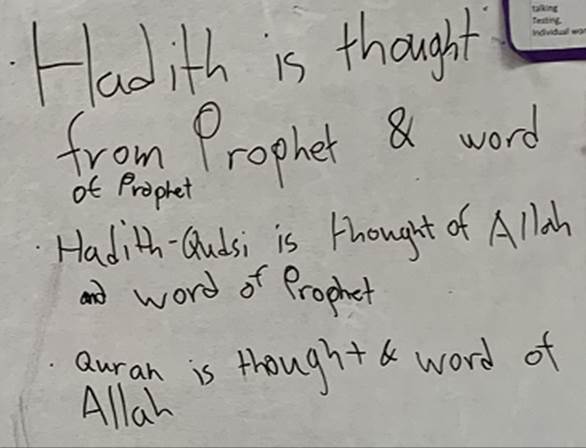 talking
Testing,
Individual wor
· Hadith is thought
from Prophet & word
of Prophet
· Hadith-Qudsi is thought of Allah
and word of Prophet
· Quran is thought & word of
Allah